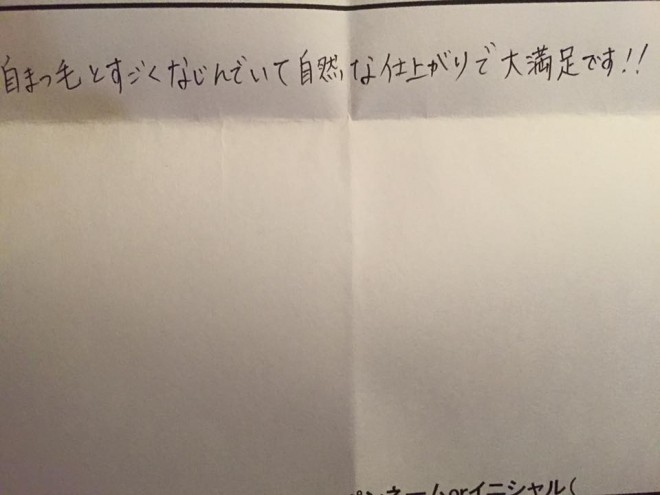 自まつ毛とすごくなじんでいて自然な仕上がりで大満足です!!
ペンネームorイニシャル(